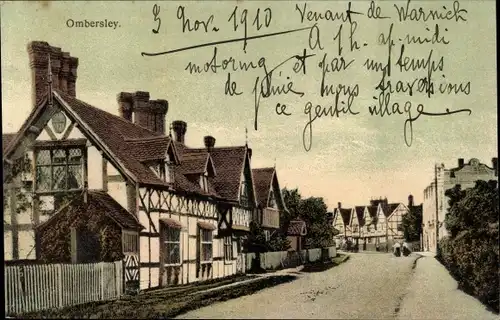 Ombersley.
3 Nov. 1910 Venant de Warwick
A 1h. ap. midi
motoring et par un temps
de pluie nous traversions
ce gentil village